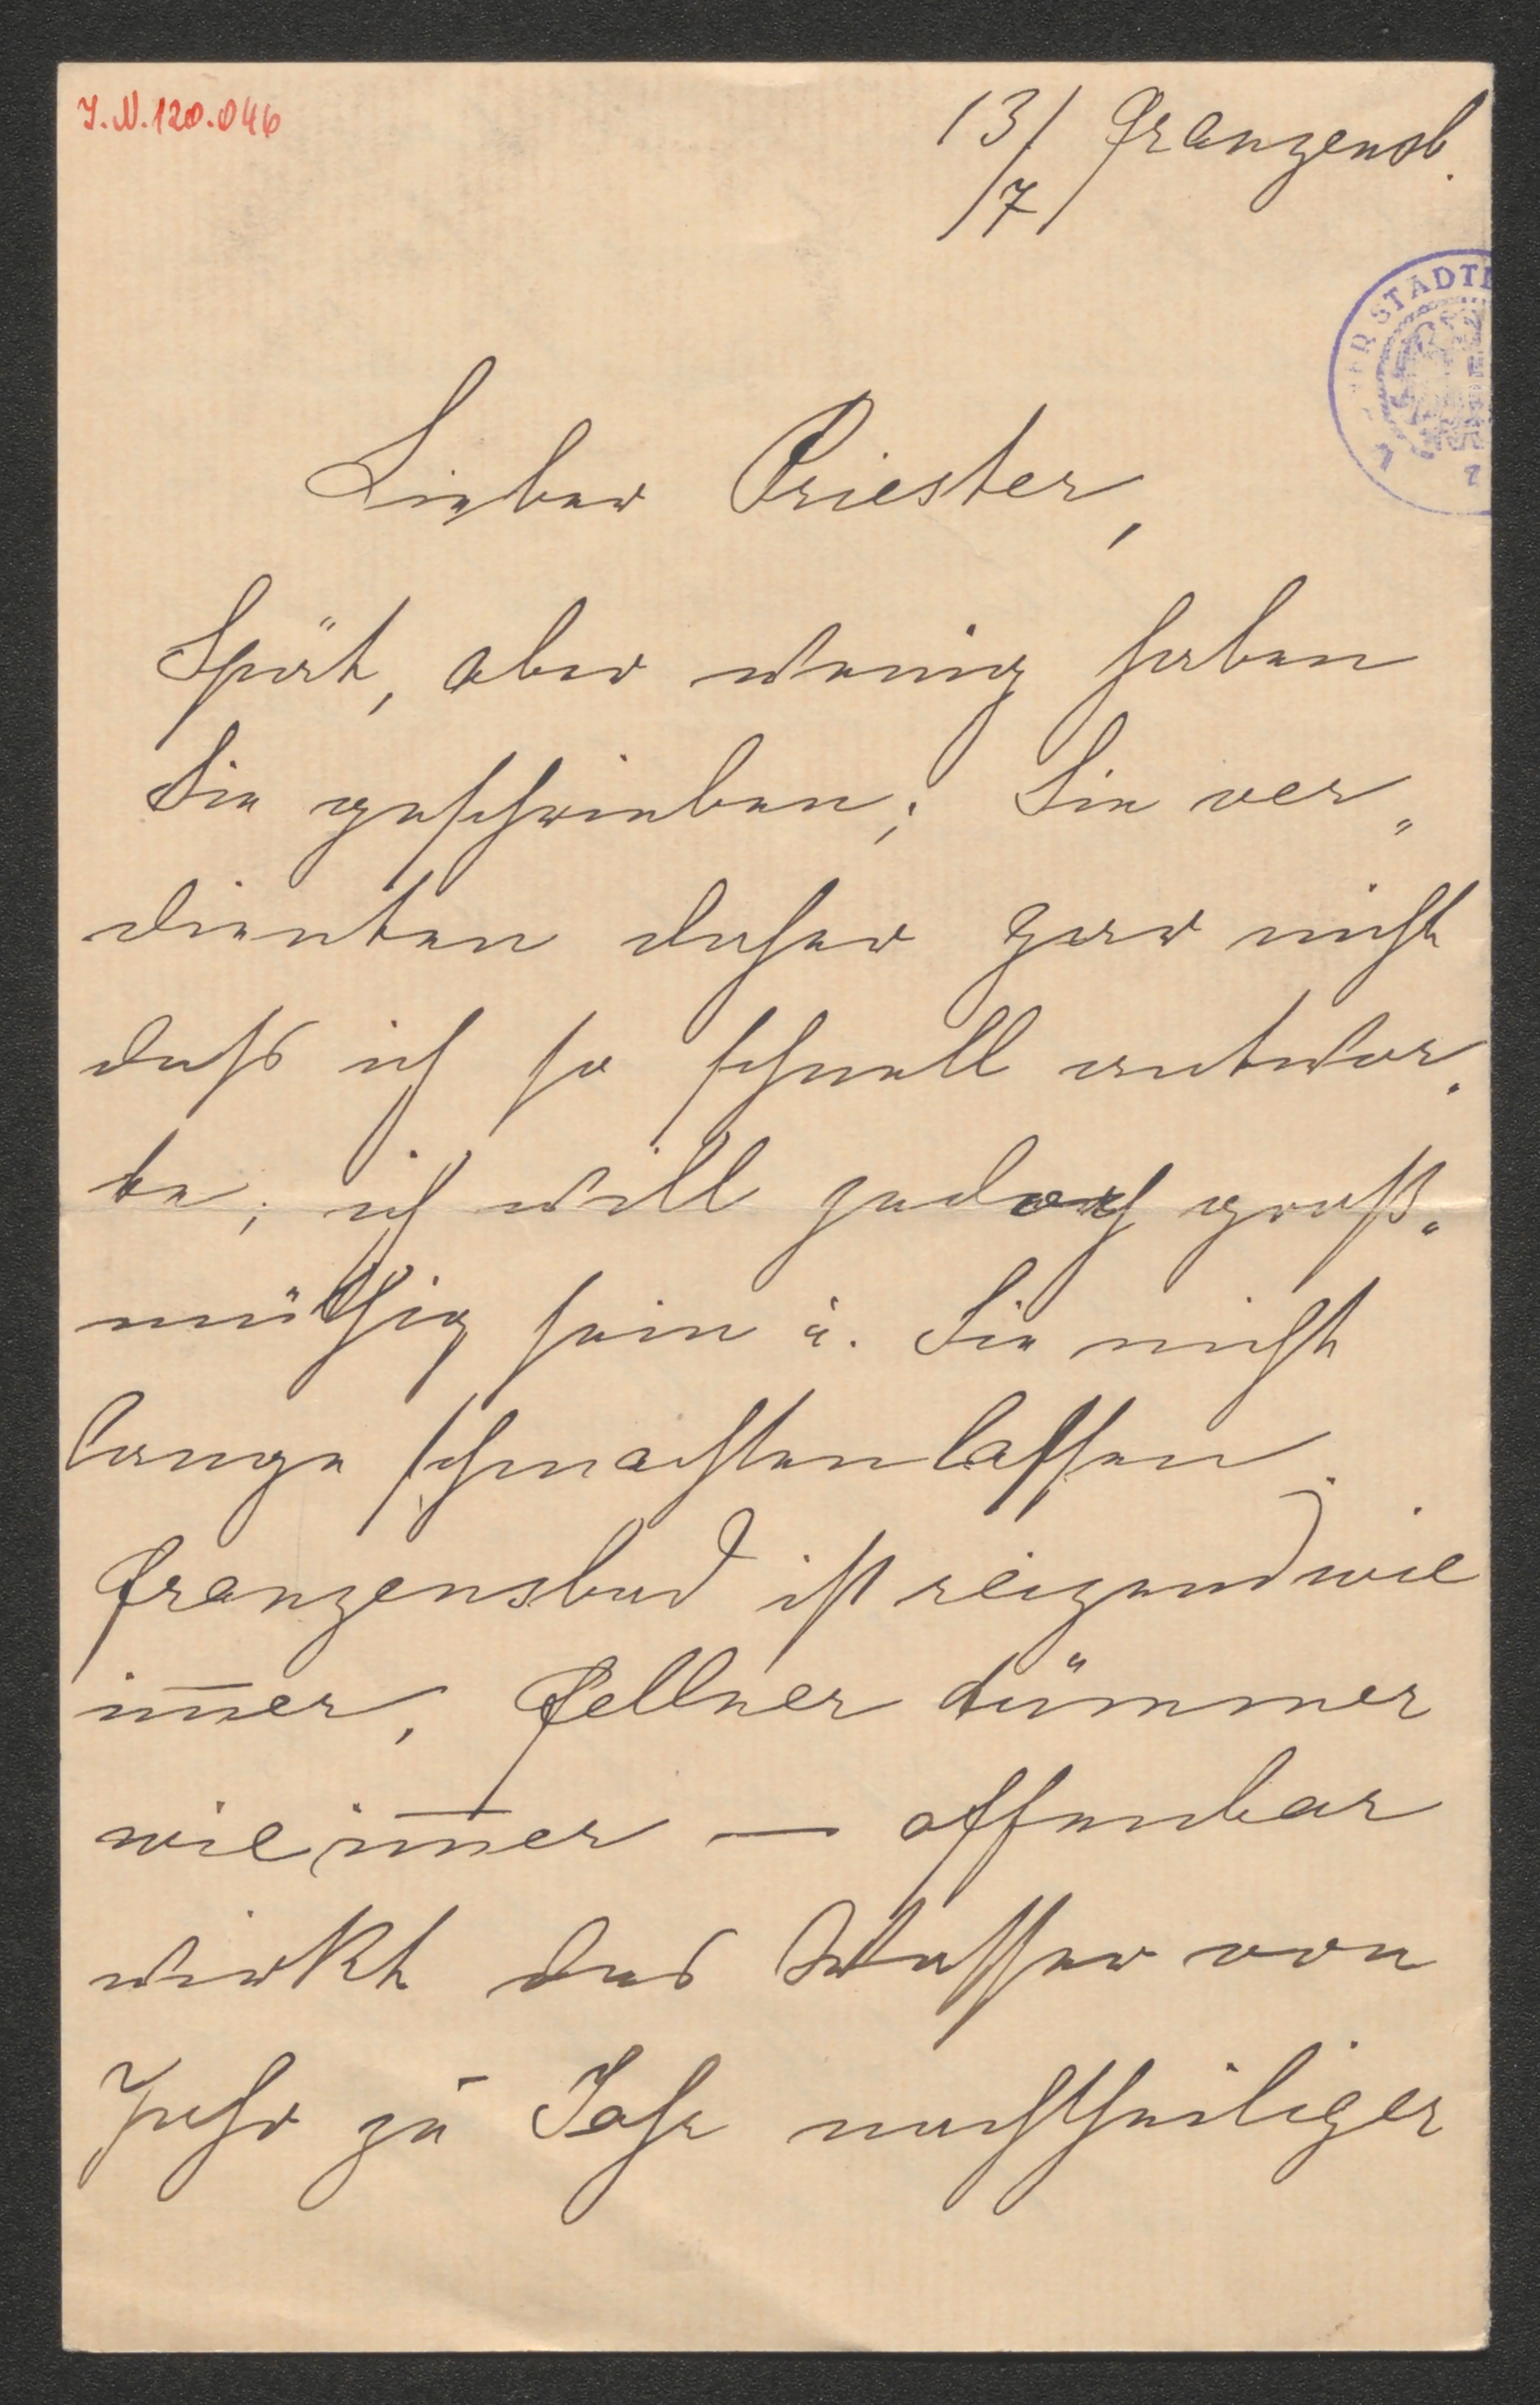 I.N.120.046
13/ Franzensb.
/7/
STADT
Lieber Priester,
Spät, aber wenig haben
Sie geschrieben; Sie ver„
dienten daher gar nicht
daß ich so schnell antwor„
te; ich will jedoch groß„
müthig sein u. Sie nicht
lange schmachten lassen.
Franzensbad ist reizend wie
im̄er, Fellner dümmer
wie im̄er — offenbar
wirkt das Wasser von
Jahr zu Jahr nachtheiliger